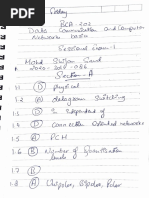 BCA-202
Data Communication and Computer
Networks basics
Sessional Exam-1
Mohd
Section A
1.1 physical
1.2 A datagram Switching
1.3
1.4 D Connection Oriented networks
1.5 A PCM
1.6 B Number of Quantization
levels
1.7 D
1.8 A Unipolar, Bipolar, Polar